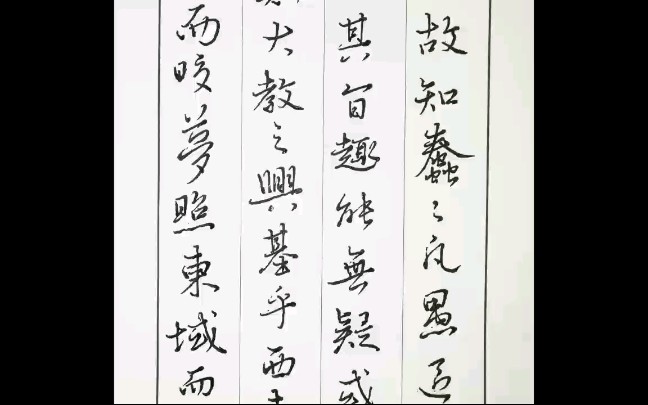 故知蠢〻凡愚
其旨趣能無疑或
大教之興基乎西
而晈夢照東域而